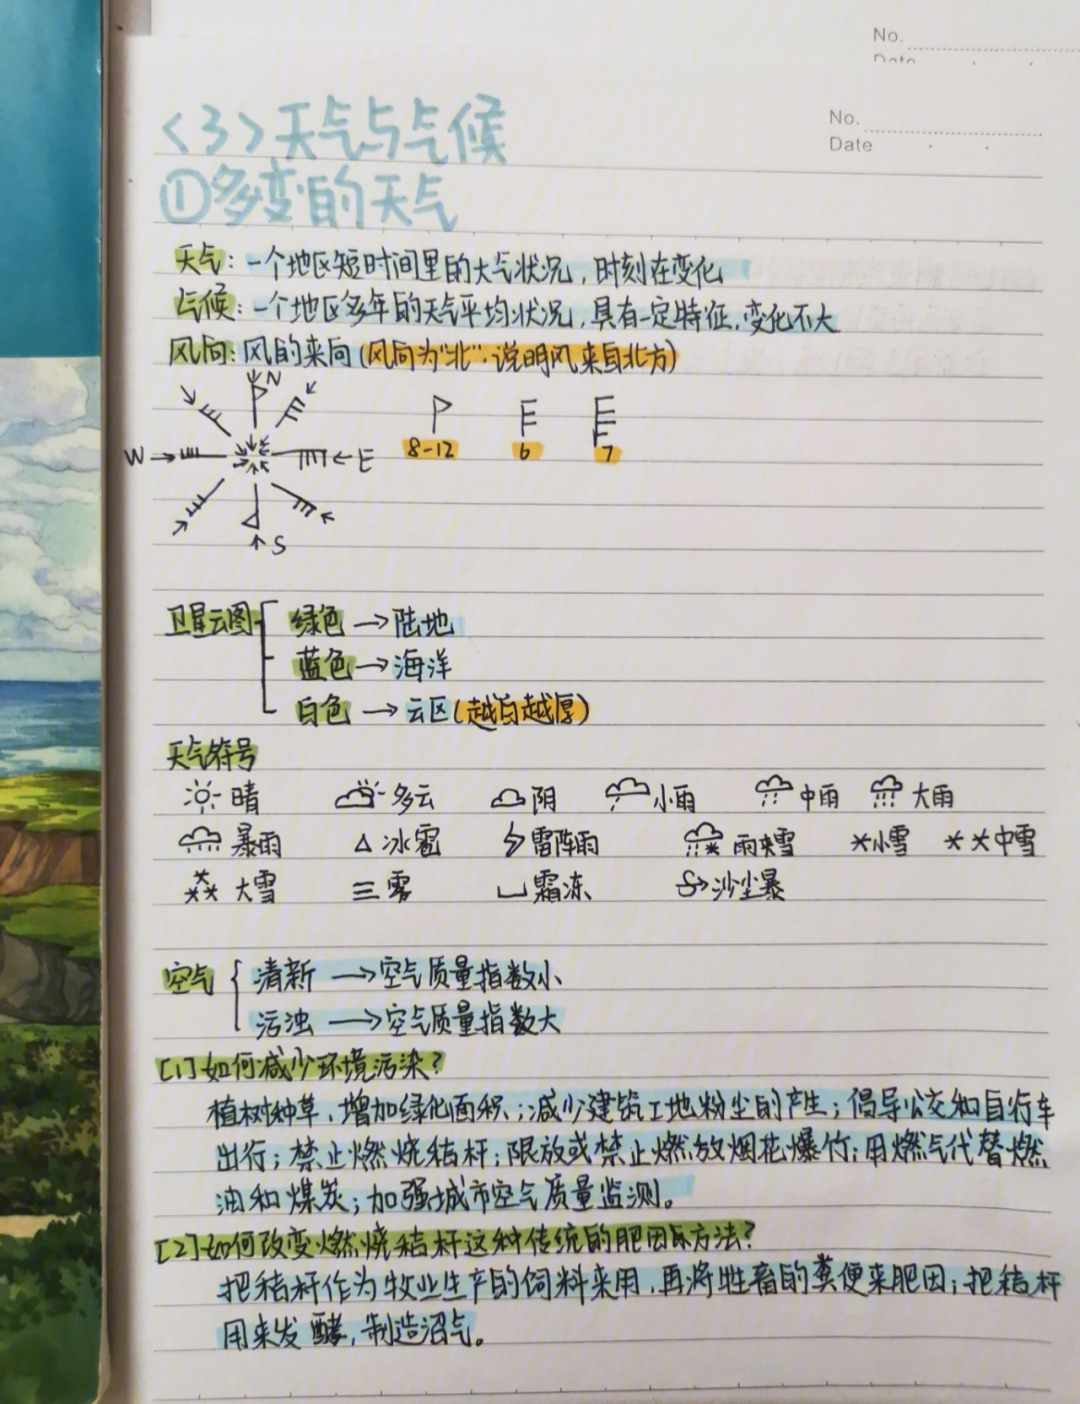 No.
Date
No.
Date
<3>天气与气候
①多变的天气
天气:一个地区短时间里的大气状况,时刻在变化
气候:一个地区多年的天气平均状况,具有一定特征,变化不大
风向:风的来向(风向为"北",说明风来自北方)
N
W E
S
8-12 6 7
卫星云图 绿色→陆地
蓝色→海洋
白色→云区(越白越厚)
天气符号
晴 多云 阴 小雨 中雨 大雨
暴雨 冰雹 雷阵雨 雨夹雪 小雪 中雪
大雪 雾 霜冻 沙尘暴
空气 { 清新→空气质量指数小
污浊→空气质量指数大
[1]如何减少环境污染?
植树种草,增加绿化面积;减少建筑工地粉尘的产生;倡导公交和自行车
出行;禁止燃烧秸杆;限放或禁止燃放烟花爆竹;用燃气代替燃
油和煤炭;加强城市空气质量监测。
[2]如何改变燃烧秸杆这种传统的肥田方法?
把秸杆作为牧业生产的饲料来用,再将牲畜的粪便来肥田;把秸杆
用来发酵,制造沼气。